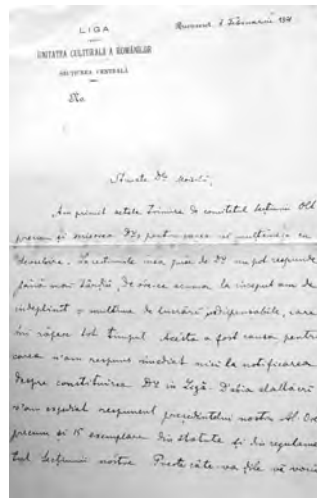 LIGA
UNITATEA CULTURALĂ A ROMÂNILOR
SECȚIUNEA CENTRALĂ
No
București, 6 Februarie 1891
Stimate Dle
Am primit actele trimise de comitetul secțiunii Olt
precum și scrisoarea Dv, pentru care vĕ mulțumesc cu
deosebire. La cestiunile puse de Dv nu pot respunde
până mai târziu, de oare ce acuma la început am de
îndeplinit o mulțime de lucrări indispensabile, care
îmi răpesc tot timpul. Acesta a fost causa pentru
care n'am respuns imediat nici la notificarea
despre constituirea Dv în Ligă. D'abia alaltăeri
v'am expediat respunsul președintelui nostru Al. Or
precum și 15 exemplare din statute și din regulamen
tul Secțiunii nostre. Peste câte-va dile vĕ voiu